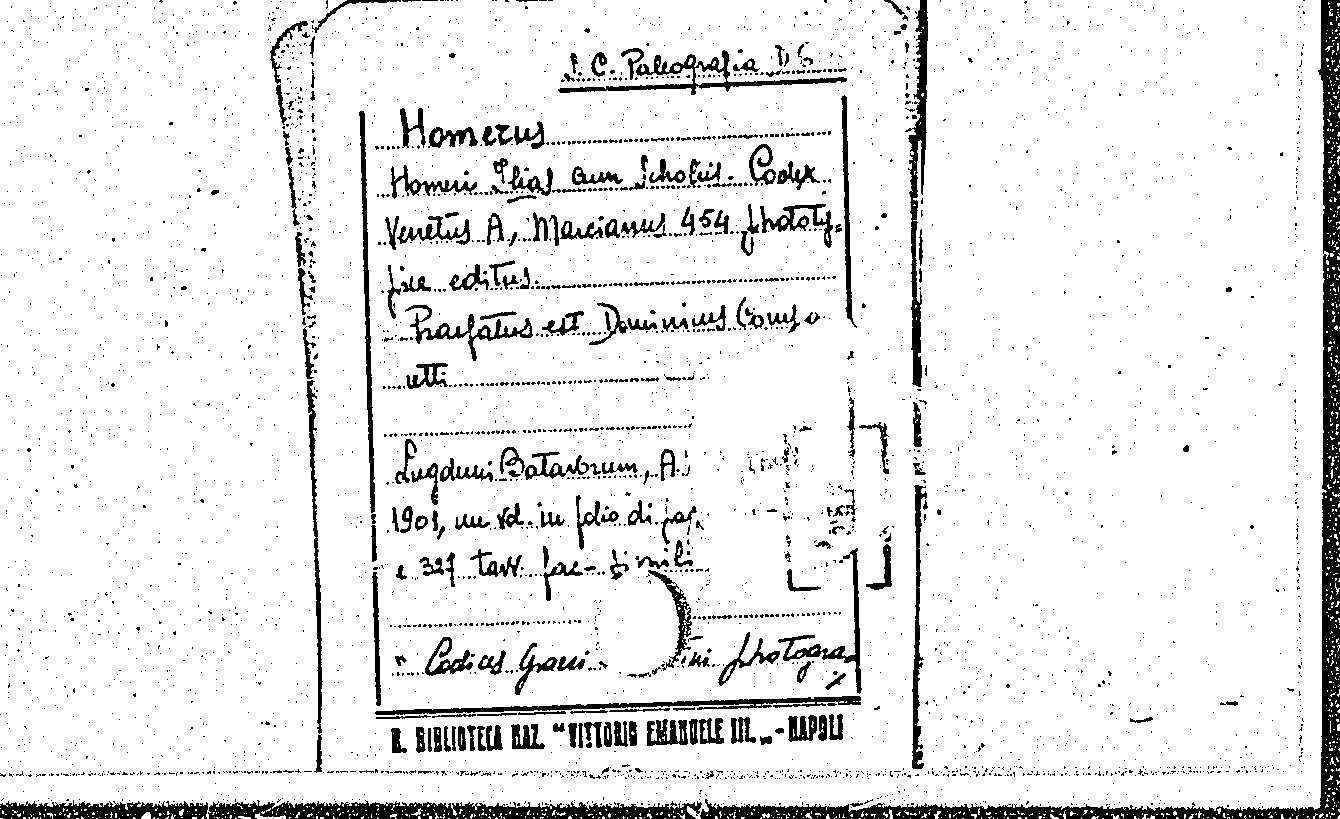 S. C. Paleografia D 6
Homerus
Homeri Ilias cum Scholiis. Codex
Venetus A, Marcianus 454 phototy-
pice editus.
Praefatus est Dominicus Comp a
etti
Lugduni Batavorum, A.
1901, un vol. in folio di pag.
e 327 tavv. fac-simili
" Codices Graeci photogra-
R. BIBLIOTECA NAZ. "VITTORIO EMANUELE III." - NAPOLI